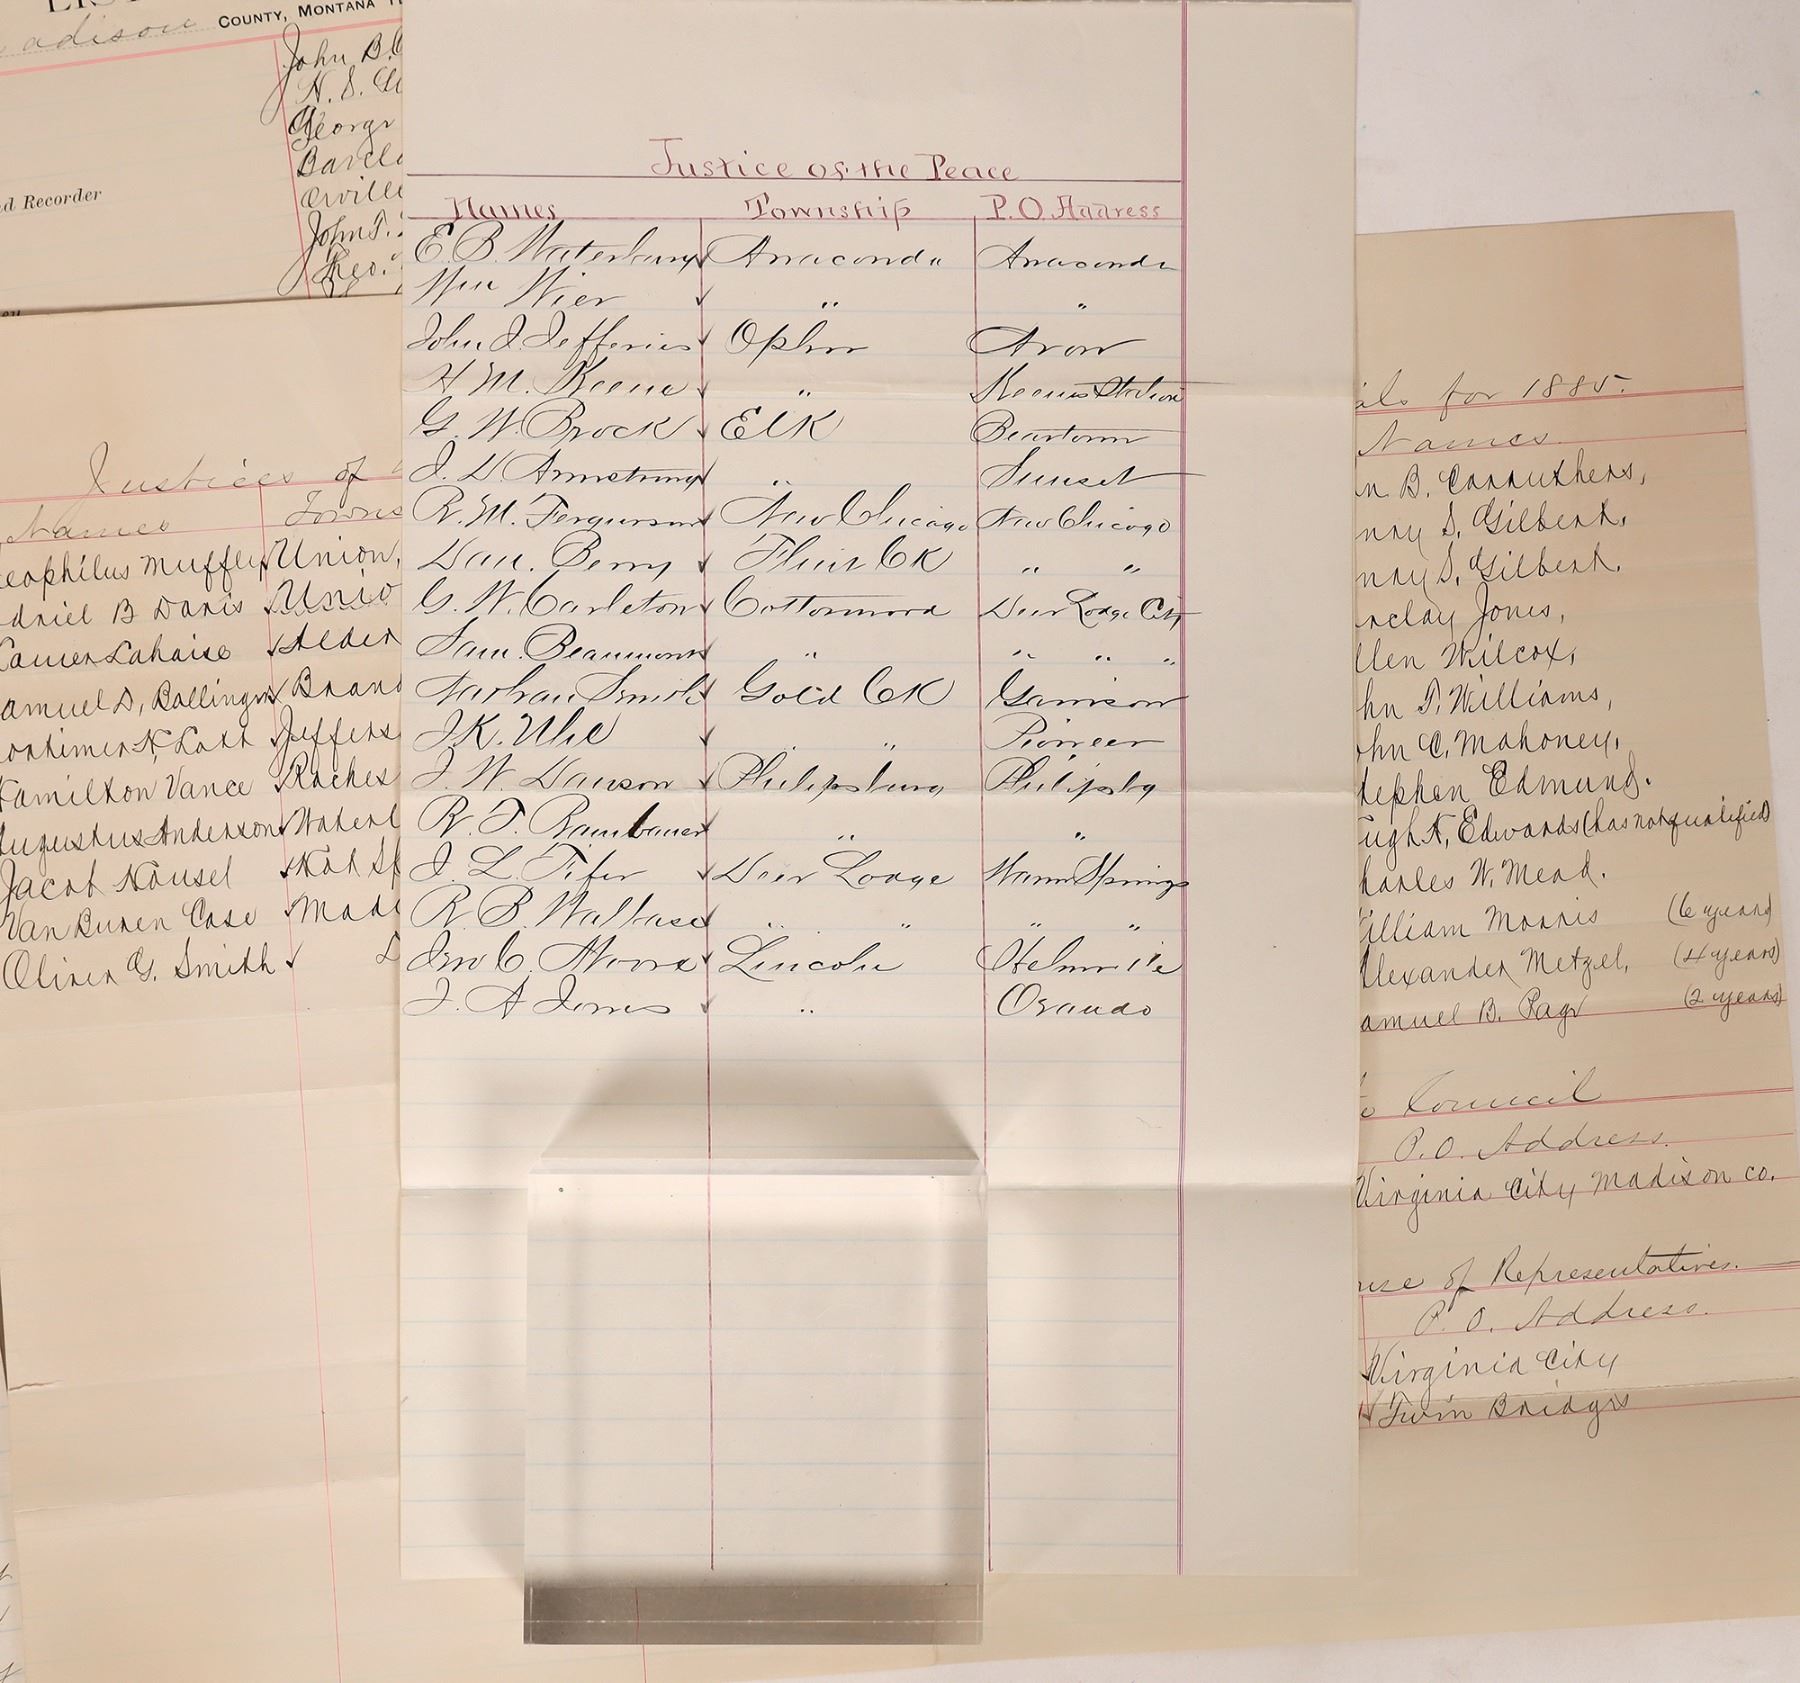 County, Montana
adison
John B.
N. S.
George
Barcla
Orville
John T.
Geo.
d Recorder
Justices of
Names Towns
eophilus Muffley Union,
driel B Davis Unio
Lamer Lahaise Alder
amuel D, Bollinger Brand
ortimer N. Lott Jeffers
Hamilton Vance Roches
Augustus Anderson Waterl
Jacob Housel Hot Sp
Van Buren Case Madi
Oliver G. Smith
Justice of the Peace
Names Township P.O. Address
E. B. Waterbury Anaconda Anaconda
Wm Wier " "
John J. Jefferies Ophir Avon
H M. Keene " Keenes Station
G. W. Brock Elk Beartown
J. D Armstrong " Sunset
R. M. Fergurson New Chicago New Chicago
Dan. Berry Flint CK " "
G. W. Carleton Cottonwood Deer Lodge City
Sam. Beaumont " " " "
Nathan Smith Gold CK Garrison
J K. Uhl " " Pioneer
J. W. Dawson Philipsburg Philipsbg
R. T. Rambauer " "
J. L. Fifer Deer Lodge Warm Springs
R. B. Wallace " " " "
Jno C. Moore Lincoln Helmville
J. A Jones " Ovando
als for 1885.
Names
n B. Carruthers,
nry S. Gilbert,
nry S. Gilbert,
rclay Jones,
llen Wilcox,
hn T. Williams,
ohn C. Mahoney,
tephen Edmund.
ugh N, Edwards (has not qualified)
harles W. Mead.
illiam Morris (6 years)
lexander Metzel, (4 years)
amuel B. Page (2 years)
o Council
P.O. Address.
Virginia City Madison co.
use of Representatives.
P. O. Address.
Virginia City
Twin Bridges